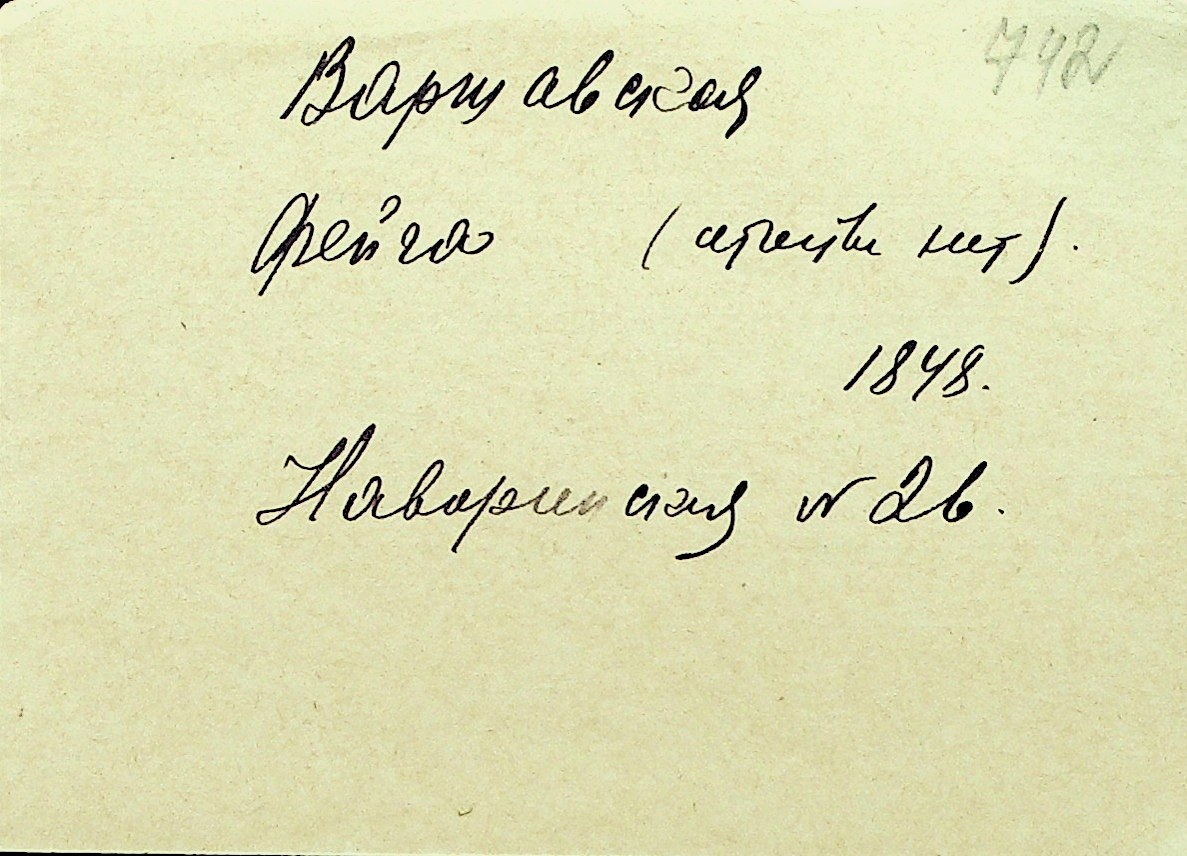 742
Варшавская
Фейга (отчества нет).
1848.
Наваринская № 26.